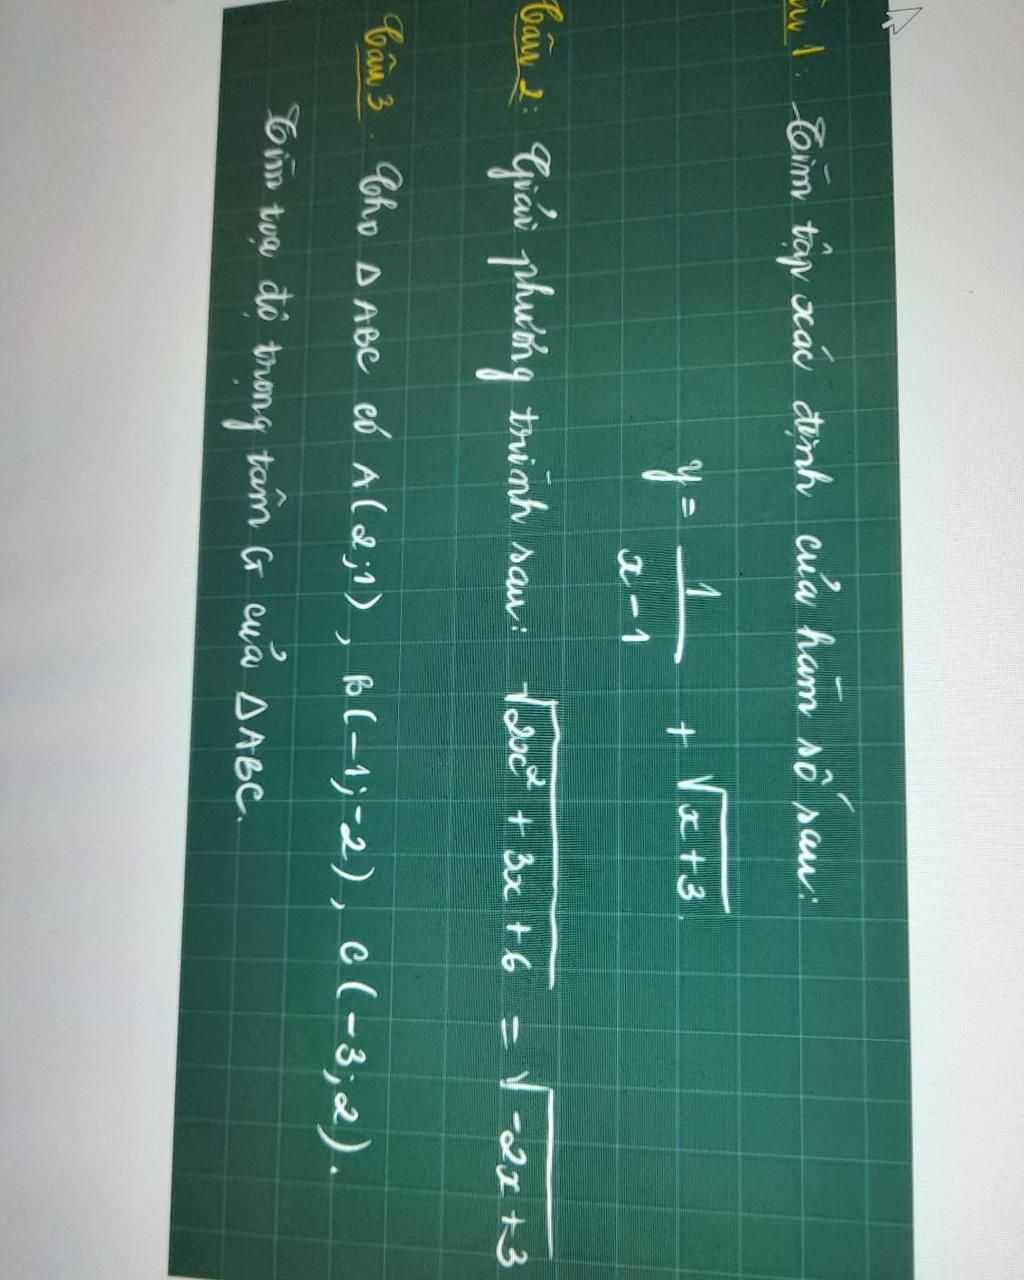 Câu 1: Tìm tập xác định của hàm số sau:
y = 1/(x-1) + √(x+3).
Câu 2: Giải phương trình sau: √(2x² + 3x + 6) = √(-2x + 3)
Câu 3. Cho △ABC có A(2;1), B(-1;-2), C(-3;2).
Tìm tọa độ trọng tâm G của △ABC.